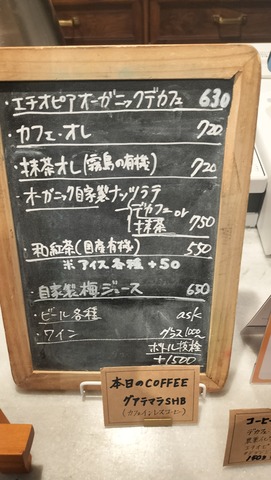 ・エチオピアオーガニックデカフェ 630
・カフェ・オレ 720
・抹茶オレ(霧島の有機) 720
・オーガニック自家製ナッツラテ
デカフェ or
抹茶 750
・和紅茶(国産有機) 550
※アイス各種+50
・自家製梅ジュース 650
・ビール各種 ask
・ワイン グラス1000~
ボトル抜栓
+1500
本日のCOFFEE
グアテマラSHB
(カフェインレスコーヒー)
コーヒー
デカフェ